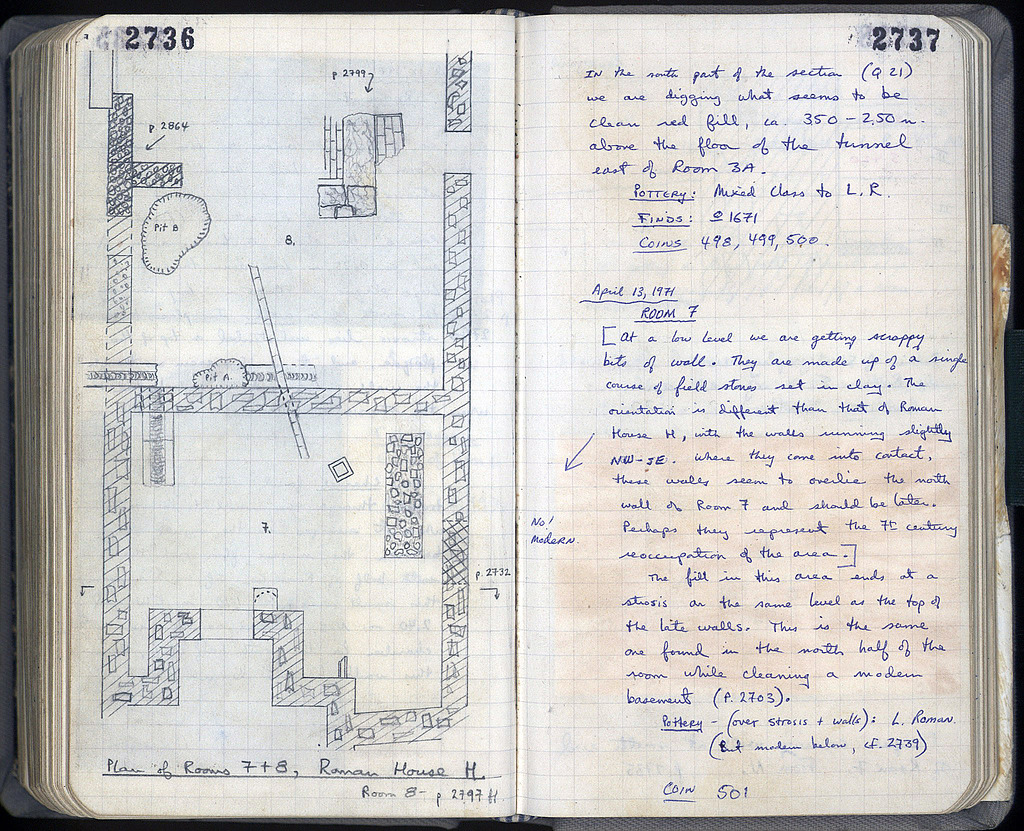 2736
p. 2799
p. 2864
Pit B
8.
Pit A.
7.
p. 2732
Plan of Rooms 7+8, Roman House H
Room 8- p 2797 ff.
2737
IN the south part of the section (Q 21)
we are digging what seems to be
clean red fill, ca. 350 - 2.50 m.
above the floor of the tunnel
east of Room 3A.
POTTERY: Mixed Class to L.R.
FINDS: 1671
COINS 498, 499, 500.
April 13, 1971
ROOM 7
[At a low level we are getting scrappy
bits of wall. They are made up of a single
course of field stones set in clay. The
orientation is different than that of Roman
House H, with the walls running slightly
NW-SE. Where they come into contact,
these walls seem to overlie the north
wall of Room 7 and should be later.
Perhaps they represent the 7th century
reoccupation of the area.]
No!
Modern.
The fill in this area ends at a
strosis on the same level as the top of
the late walls. This is the same
one found in the north half of the
room while cleaning a modern
basement (P. 2703).
Pottery - (over strosis + walls): L. Roman.
(But modern below, cf. 2739)
COIN 501